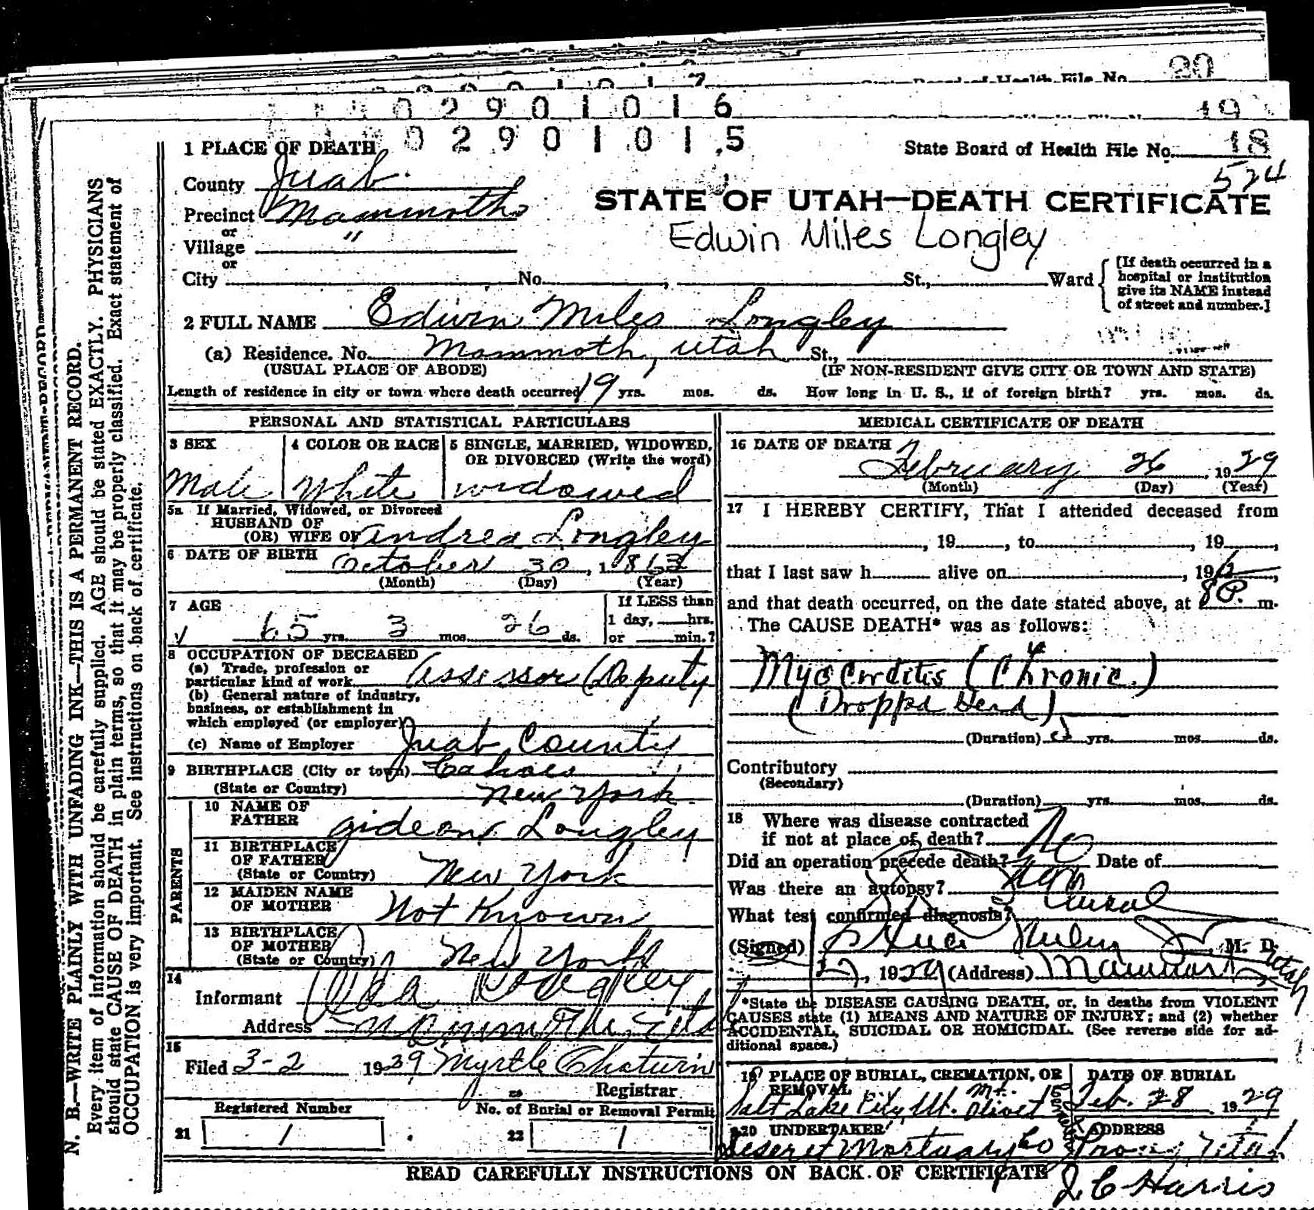 State Board of Health File No. 20
0 2 9 0 1 0 1 7
19
0 2 9 0 1 0 1 6
0 2 9 0 1 0 1 5
1 PLACE OF DEATH
State Board of Health File No. 18
524
County Juab
STATE OF UTAH—DEATH CERTIFICATE
Precinct Mammoth
or
Village "
or
Edwin Miles Longley
City No. , St., Ward
[If death occurred in a
hospital or institution
give its NAME instead
of street and number.]
2 FULL NAME Edwin Miles Longley
(a) Residence. No. Mammoth, Utah St.,
(USUAL PLACE OF ABODE) (IF NON-RESIDENT GIVE CITY OR TOWN AND STATE)
Length of residence in city or town where death occurred 19 yrs. mos. ds. How long in U. S., if of foreign birth? yrs. mos. ds.
PERSONAL AND STATISTICAL PARTICULARS
3 SEX
Male
4 COLOR OR RACE
White
5 SINGLE, MARRIED, WIDOWED,
OR DIVORCED (Write the word)
widowed
5a If Married, Widowed, or Divorced
HUSBAND OF
(OR) WIFE OF Andrea Longley
6 DATE OF BIRTH October 30, 1863
(Month) (Day) (Year)
7 AGE
65 yrs. 3 mos. 26 ds.
If LESS than
1 day, hrs.
or min.?
8 OCCUPATION OF DECEASED
(a) Trade, profession or
particular kind of work Assessor (Deputy
(b) General nature of industry,
business, or establishment in
which employed (or employer)
(c) Name of Employer Juab County
9 BIRTHPLACE (City or town) Cahoes
(State or Country) New York
PARENTS
10 NAME OF
FATHER Gideon Longley
11 BIRTHPLACE
OF FATHER
(State or Country) New York
12 MAIDEN NAME
OF MOTHER Not Known
13 BIRTHPLACE
OF MOTHER
(State or Country) New York
14
Informant Longley
Address
15
Filed 3-2 1929 Myrtle
Registrar
Registered Number No. of Burial or Removal Permit
21 1 22 1
MEDICAL CERTIFICATE OF DEATH
16 DATE OF DEATH
February 26, 1929
(Month) (Day) (Year)
17 I HEREBY CERTIFY, That I attended deceased from
, 19 , to , 19 ,
that I last saw h alive on , 19 ,
and that death occurred, on the date stated above, at 8 P. m.
The CAUSE DEATH* was as follows:
Myocarditis (Chronic.)
(Dropped Dead)
(Duration) yrs. mos. ds.
Contributory
(Secondary)
(Duration) yrs. mos. ds.
18 Where was disease contracted
if not at place of death?
Did an operation precede death? No Date of
Was there an autopsy?
What test confirmed diagnosis?
(Signed) M. D.
27, 1929 (Address) Mammoth Utah
*State the DISEASE CAUSING DEATH, or, in deaths from VIOLENT
CAUSES state (1) MEANS AND NATURE OF INJURY; and (2) whether
ACCIDENTAL, SUICIDAL OR HOMICIDAL. (See reverse side for ad-
ditional space.)
19 PLACE OF BURIAL, CREMATION, OR
REMOVAL
Salt Lake City Ut. Mt. Olivet
DATE OF BURIAL
Feb. 28, 1929
20 UNDERTAKER
Deseret Mortuary Co
ADDRESS
Provo, Utah
READ CAREFULLY INSTRUCTIONS ON BACK OF CERTIFICATE
J. C. Harris
N. B.—WRITE PLAINLY WITH UNFADING INK—THIS IS A PERMANENT RECORD.
Every item of information should be carefully supplied. AGE should be stated EXACTLY. PHYSICIANS
should state CAUSE OF DEATH in plain terms, so that it may be properly classified. Exact statement of
OCCUPATION is very important. See instructions on back of certificate.